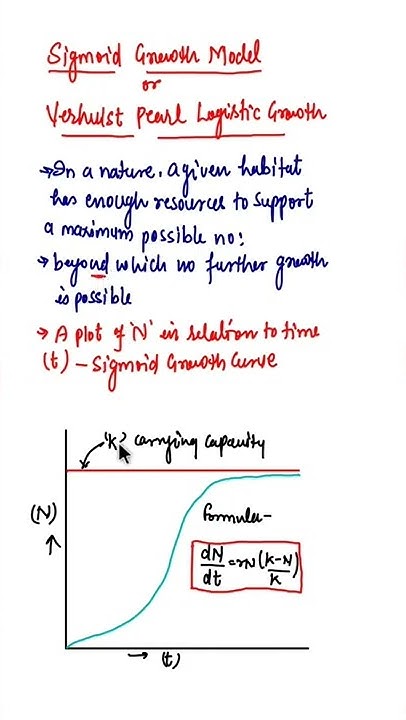 Sigmoid Growth Model
or
Verhulst Pearl Logistic Growth
→ In a nature, a given habitat
has enough resources to support
a maximum possible no:
→ beyond which no further growth
is possible
→ A plot of 'N' in relation to time
(t) - Sigmoid Growth Curve
'K' carrying capacity
(N)
↑
Formula-
dN/dt = rN(K-N/K)
→ (t)